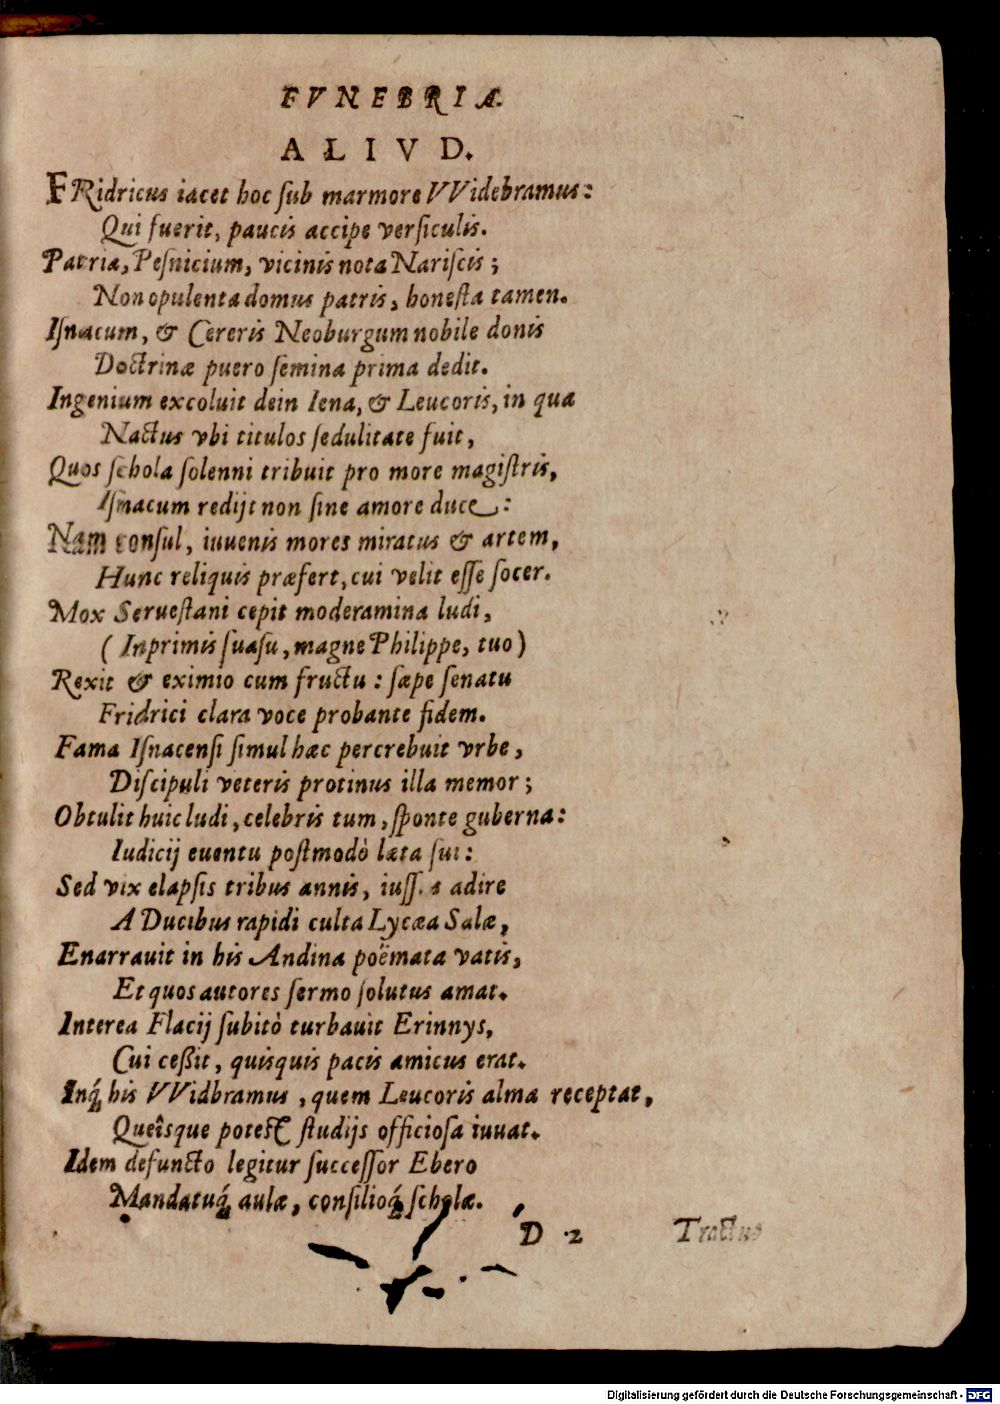 FVNEBRIA.
ALIVD.
FRidricus iacet hoc ſub marmore VVidebramus:
Qui fuerit, paucis accipe verſiculis.
Patria, Peſnicium, vicinis nota Nariſcis;
Non opulenta domus patris, honeſta tamen.
Iſnacum, & Cereris Neoburgum nobile donis
Doctrinæ puero ſemina prima dedit.
Ingenium excoluit dein Iena, & Leucoris, in qua
Nactus vbi titulos ſedulitate fuit,
Quos schola ſolenni tribuit pro more magiſtris,
Iſnacum redijt non ſine amore duce:
Nam conſul, iuuenis mores miratus & artem,
Hunc reliquis præfert, cui velit eſſe ſocer.
Mox Serueſtani cepit moderamina ludi,
(Inprimis ſuaſu, magne Philippe, tuo)
Rexit & eximio cum fructu: ſæpe ſenatu
Fridrici clara voce probante fidem.
Fama Iſnacenſi ſimul hæc percrebuit vrbe,
Diſcipuli veteris protinus illa memor;
Obtulit huic ludi, celebris tum, ſponte guberna:
Iudicij euentu poſtmodò læta ſui:
Sed vix elapſis tribus annis, adire
A Ducibus rapidi culta Lycæa Salæ,
Enarrauit in his Andina poëmata vatis,
Et quos autores ſermo ſolutus amat.
Interea Flacij ſubitò turbauit Erinnys,
Cui ceßit, quisquis pacis amicus erat.
Inq́ his VVidbramus, quem Leucoris alma receptat,
Queîsque poteſt ſtudijs officioſa iuuat.
Idem defuncto legitur ſucceſſor Ebero
Mandatuq́ aulæ, conſilioq́ ſcholæ.
D 2 Tractus
Digitalisierung gefördert durch die Deutsche Forschungsgemeinschaft - DFG